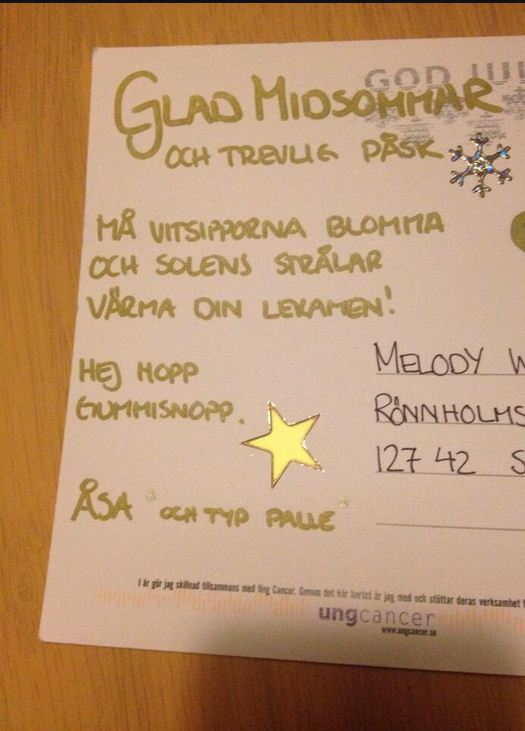 GOD JUL
GLAD MIDSOMMAR
OCH TREVLIG PÅSK
MÅ VITSIPPORNA BLOMMA
OCH SOLENS STRÅLAR
VÄRMA DIN LEKAMEN!
HEJ HOPP
GUMMISNOPP.
ÅSA "OCH TYP PALLE"
MELODY W
RÖNNHOLMS
127 42 S
I år gör jag skillnad tillsammans med Ung Cancer. Genom det här kortet är jag med och stöttar deras verksamhet
ungcancer
www.ungcancer.se